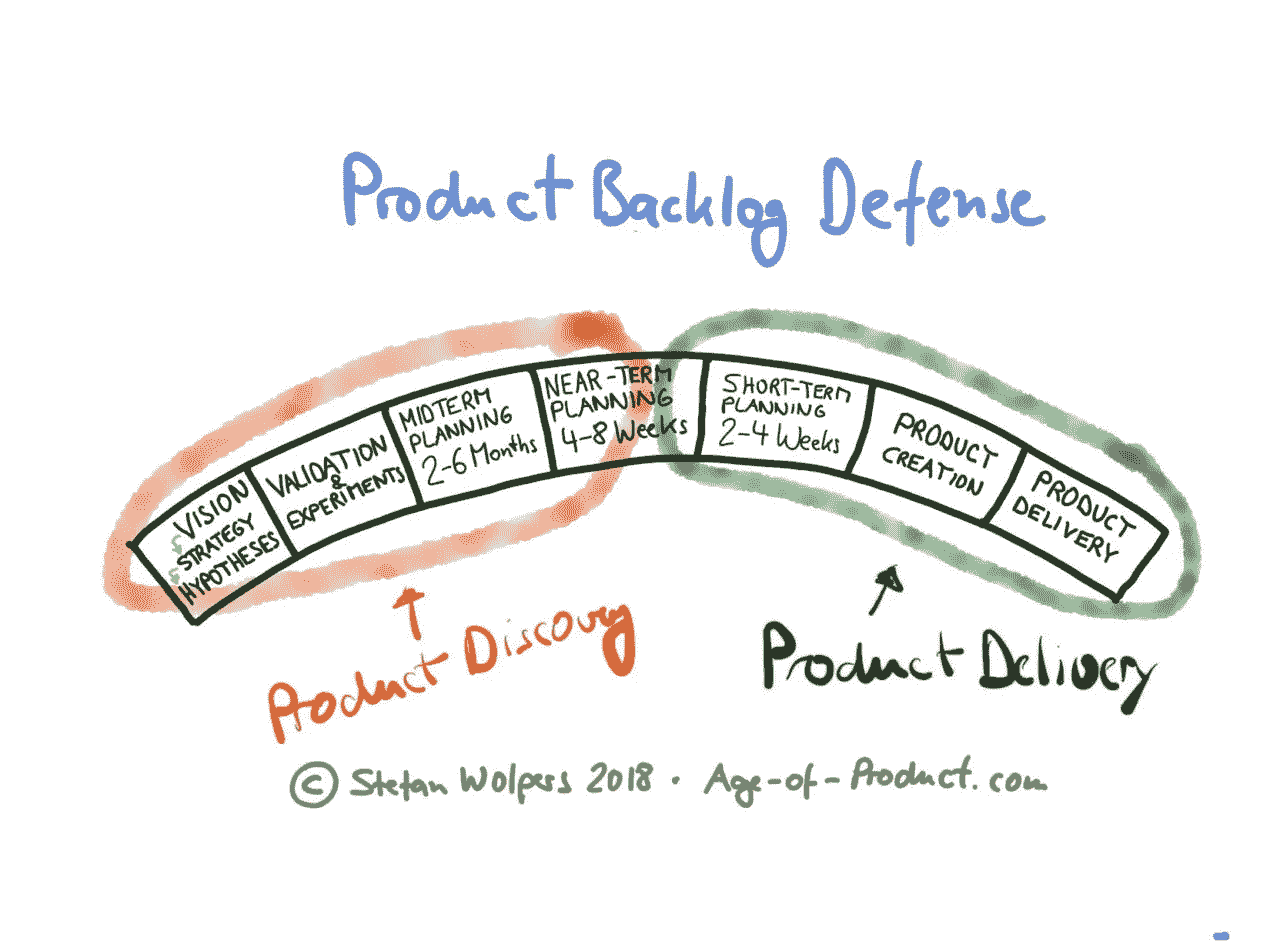 Product Backlog Defense
VISION
STRATEGY
HYPOTHESES
VALIDATION
&
EXPERIMENTS
MIDTERM
PLANNING
2-6 Months
NEAR-TERM
PLANNING
4-8 Weeks
SHORT-TERM
PLANNING
2-4 Weeks
PRODUCT
CREATION
PRODUCT
DELIVERY
Product Discovery
Product Delivery
© Stefan Wolpers 2018 · Age-of-Product.com